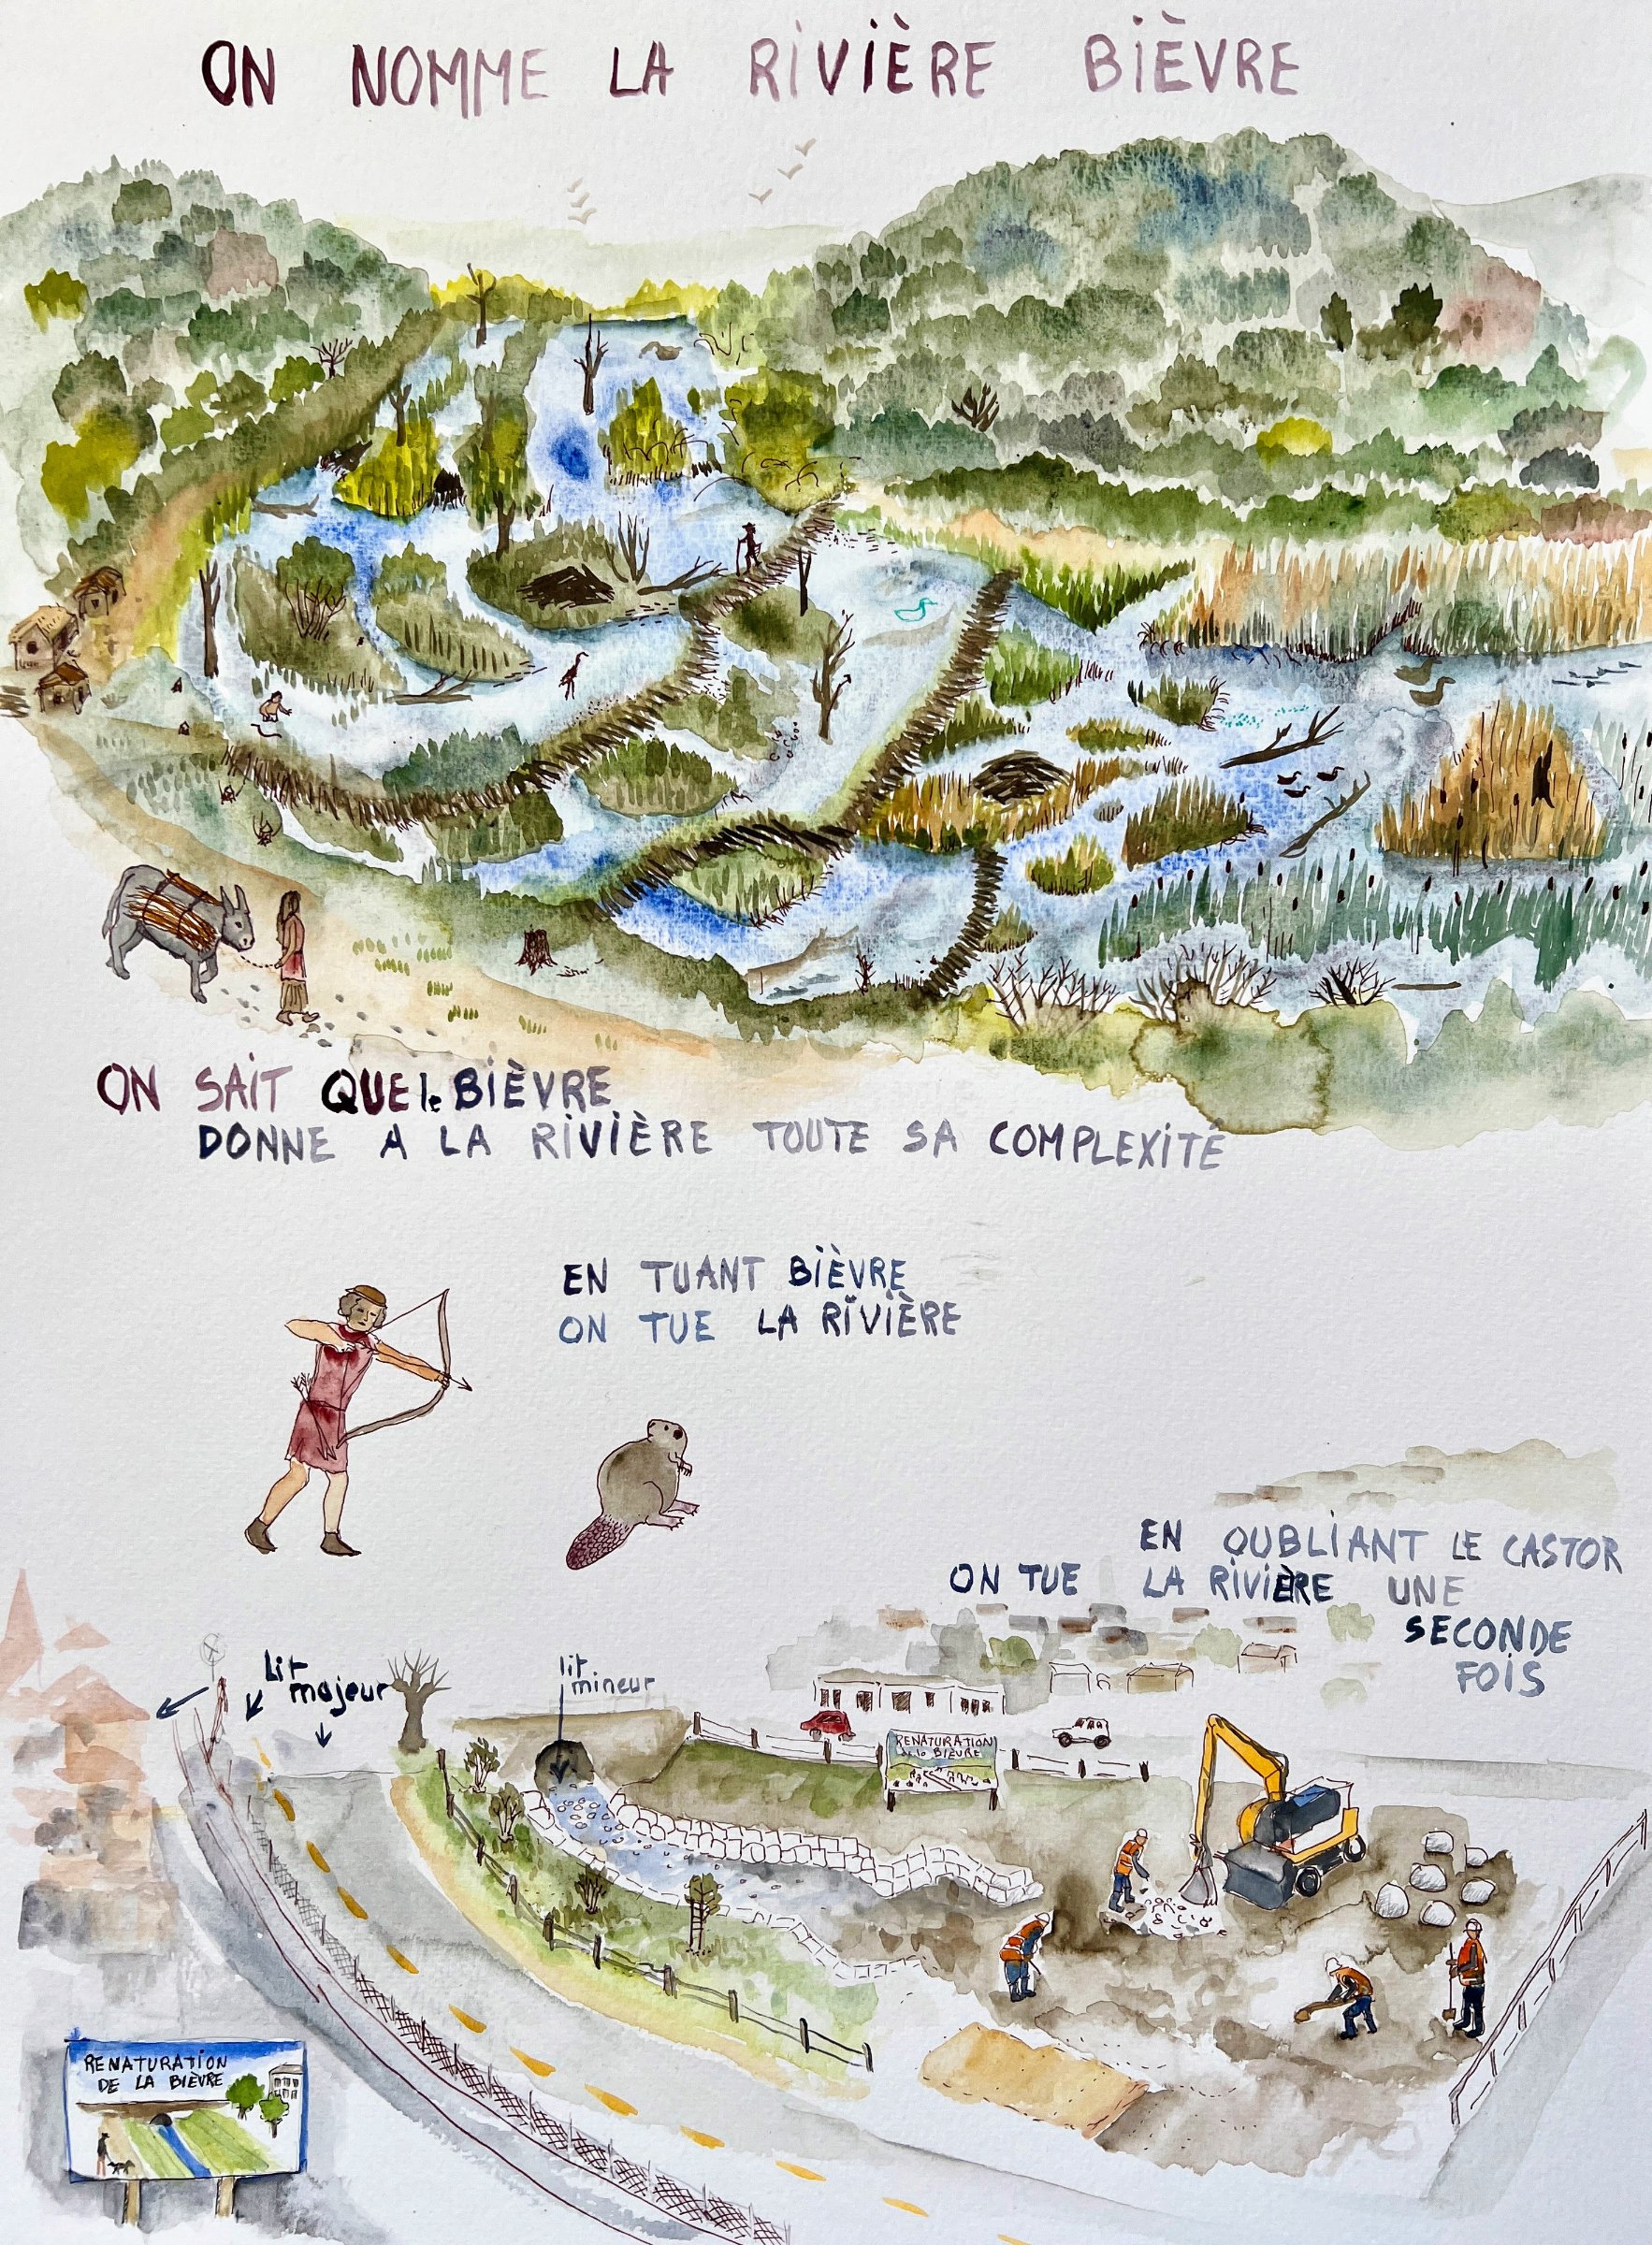 ON NOMME LA RIVIÈRE BIÈVRE
ON SAIT QUE le BIÈVRE
DONNE A LA RIVIÈRE TOUTE SA COMPLEXITÉ
EN TUANT BIÈVRE
ON TUE LA RIVIÈRE
EN OUBLIANT LE CASTOR
ON TUE LA RIVIÈRE UNE
SECONDE
FOIS
Lit
majeur
lit
mineur
RENATURATION
de la BIÈVRE
RENATURATION
DE LA BIÈVRE